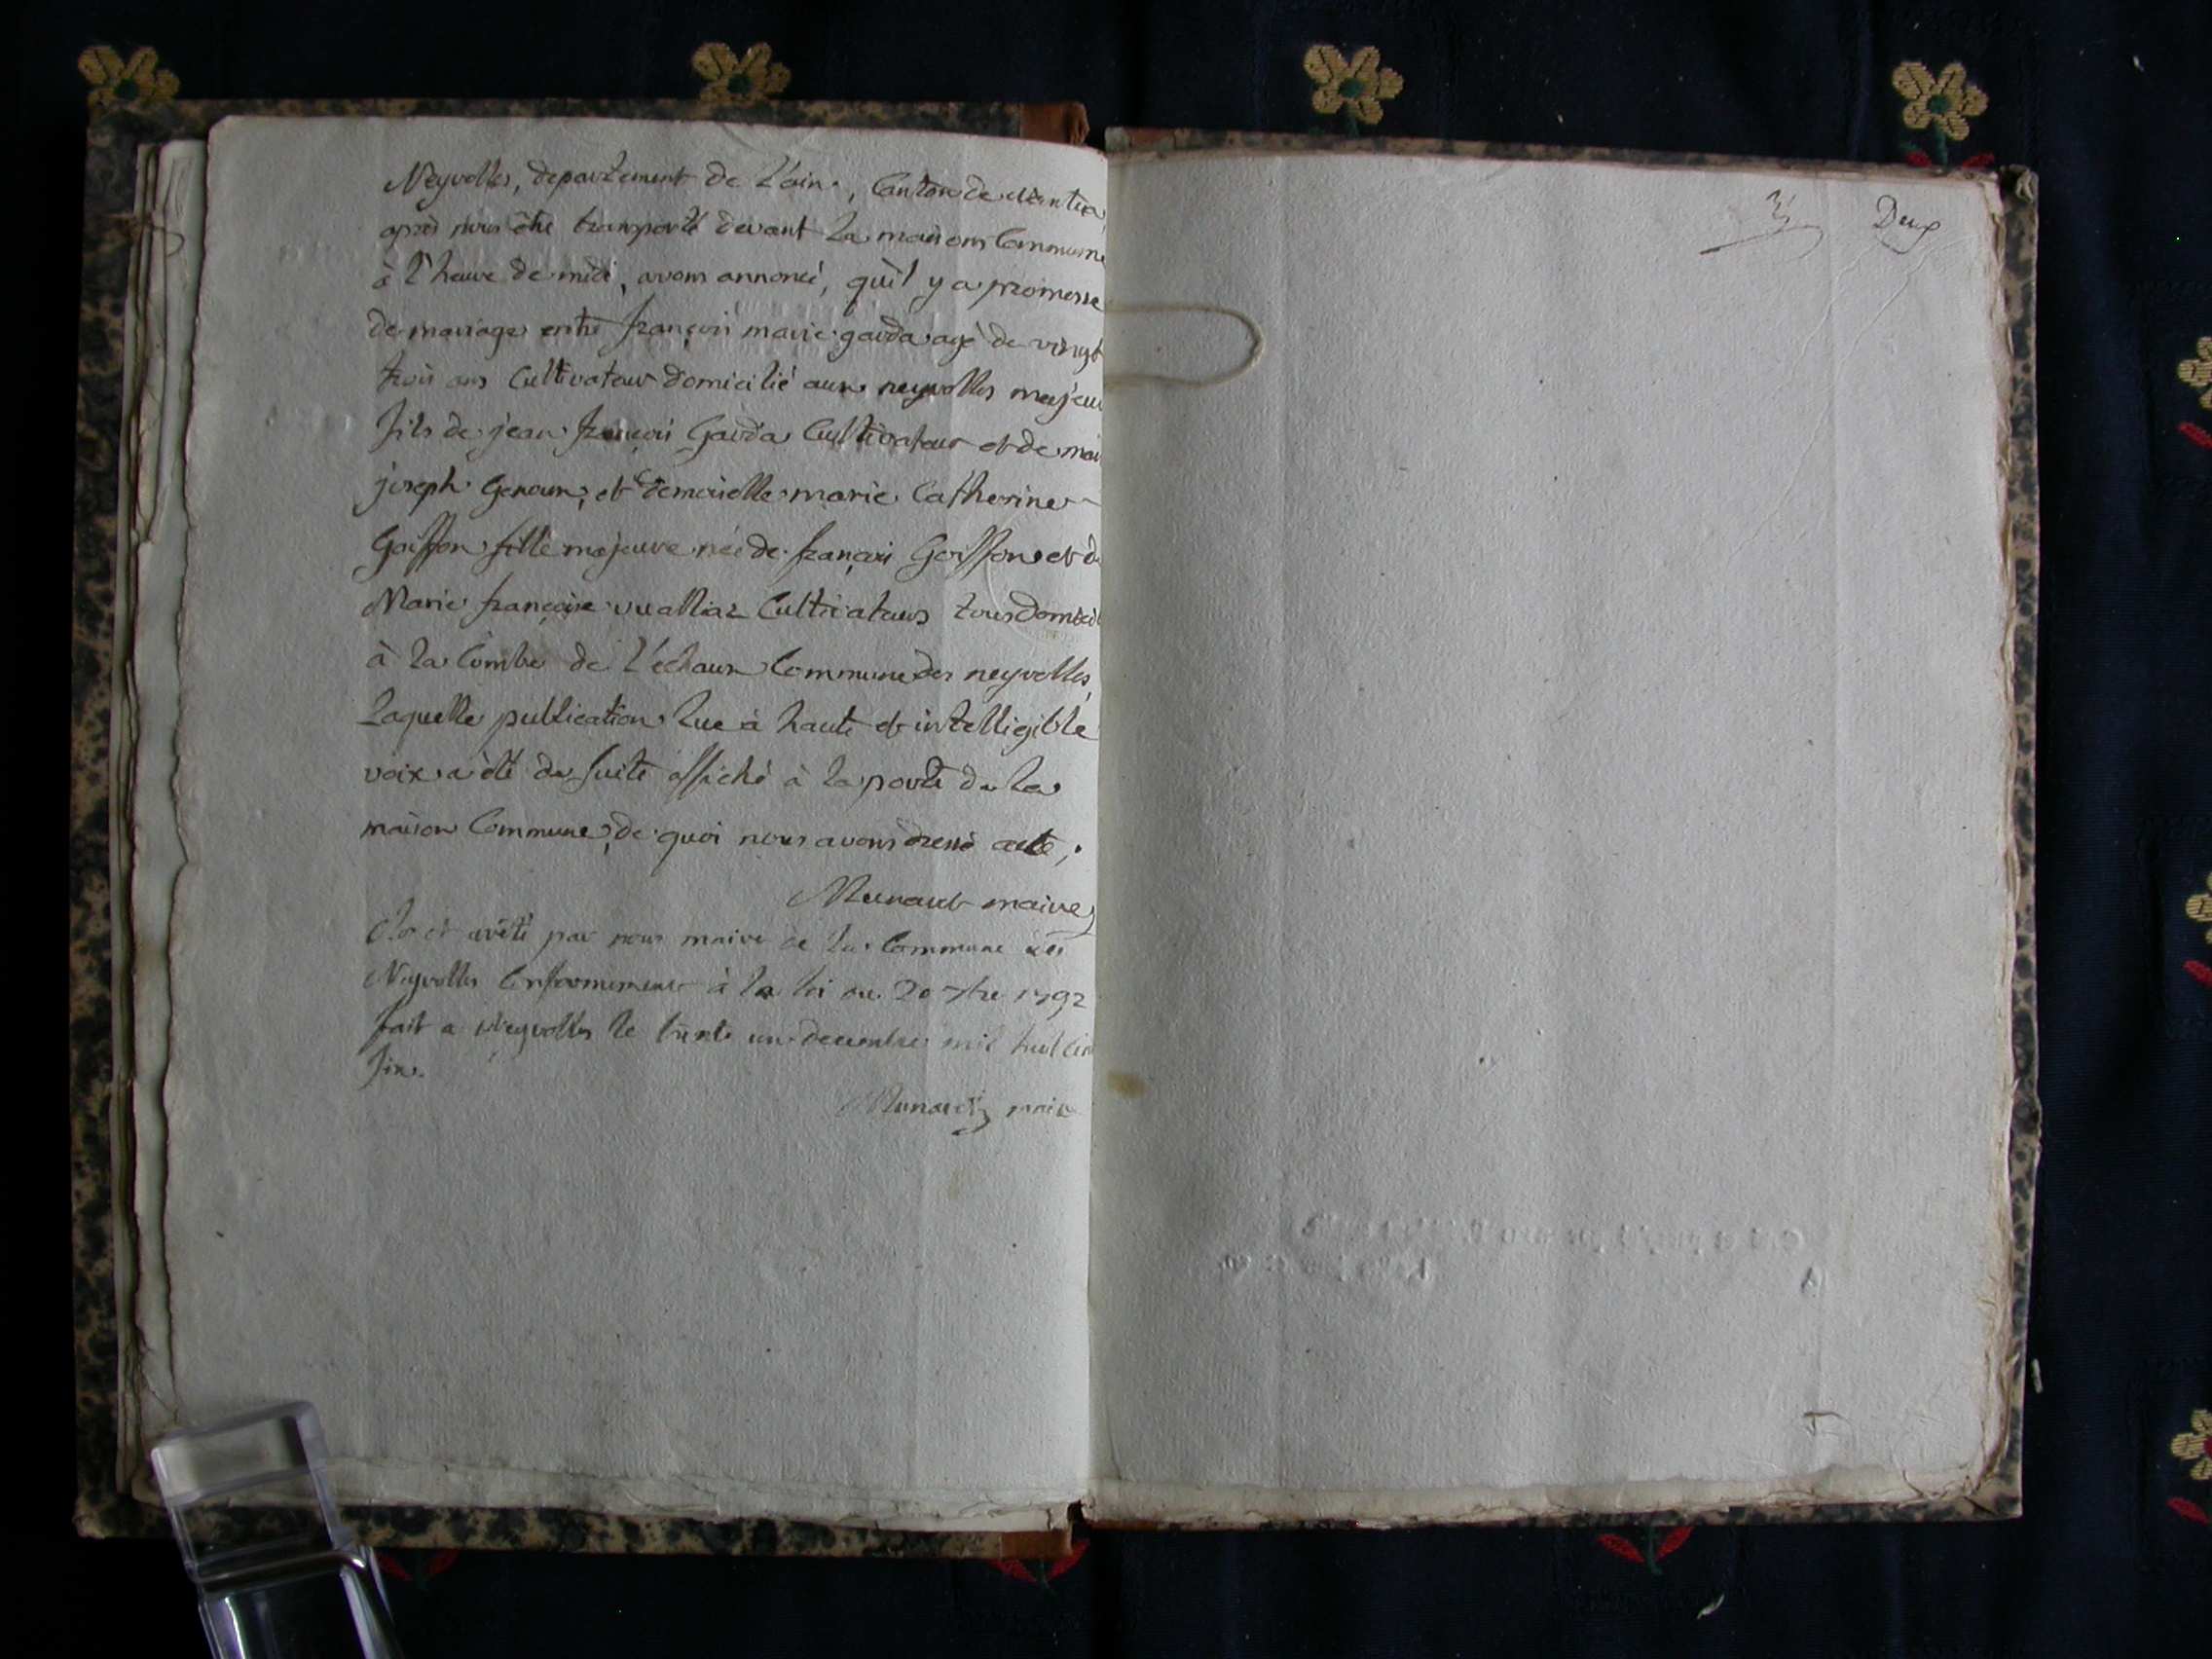 Neyrolles, departement de l'ain, Canton de nantua
après nous être transporté devant la maison Commune
à l'heure de midi, avons annoncé, qu'il y a promesse
de mariage entre françois marie garda agé de vingt
trois ans Cultivateur domicilié aux neyrolles majeur
fils de jean françois Garda Cultivateur et de marie
joseph Genoux, et demoiselle marie Catherine
Goiffon fille majeure née de françois Goiffon et de
Marie françoise vualliaz Cultivateurs tous domicil
à la Combe de l'échaux Commune des neyrolles,
laquelle publication lue à haute et intelligible
voix a été de suite affiché à la porte de la
maison Commune, de quoi nous avons dressé acte;
maire
Clos et arêté par nous maire de la Commune des
Neyrolles Conformement à la loi du 20 7bre 1792
fait a Neyrolles le trente un decembre mil huit cent
six.
maire
Deux